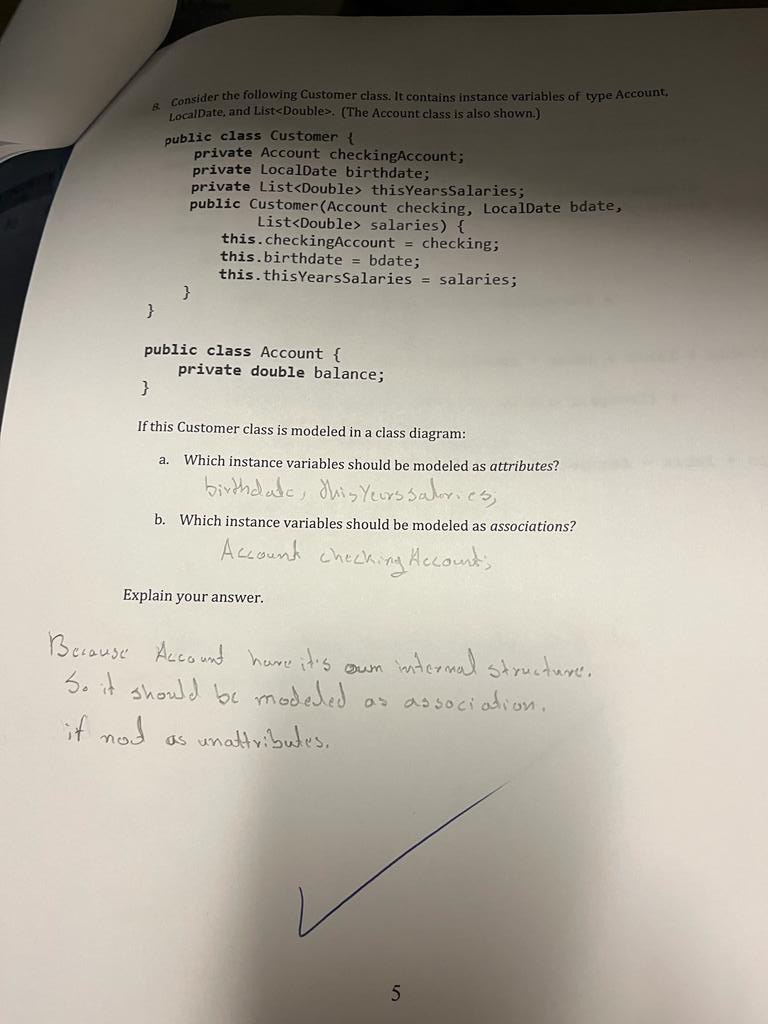 8. Consider the following Customer class. It contains instance variables of type Account,
LocalDate, and List<Double>. (The Account class is also shown.)
public class Customer {
private Account checkingAccount;
private LocalDate birthdate;
private List<Double> thisYearsSalaries;
public Customer(Account checking, LocalDate bdate,
List<Double> salaries) {
this.checkingAccount = checking;
this.birthdate = bdate;
this.thisYearsSalaries = salaries;
}
}
public class Account {
private double balance;
}
If this Customer class is modeled in a class diagram:
a. Which instance variables should be modeled as attributes?
birthdate, thisYearssalaries;
b. Which instance variables should be modeled as associations?
Account checkingAccount;
Explain your answer.
Because Account have it's own internal structure.
So it should be modeled as association.
if not as unattributes.
5